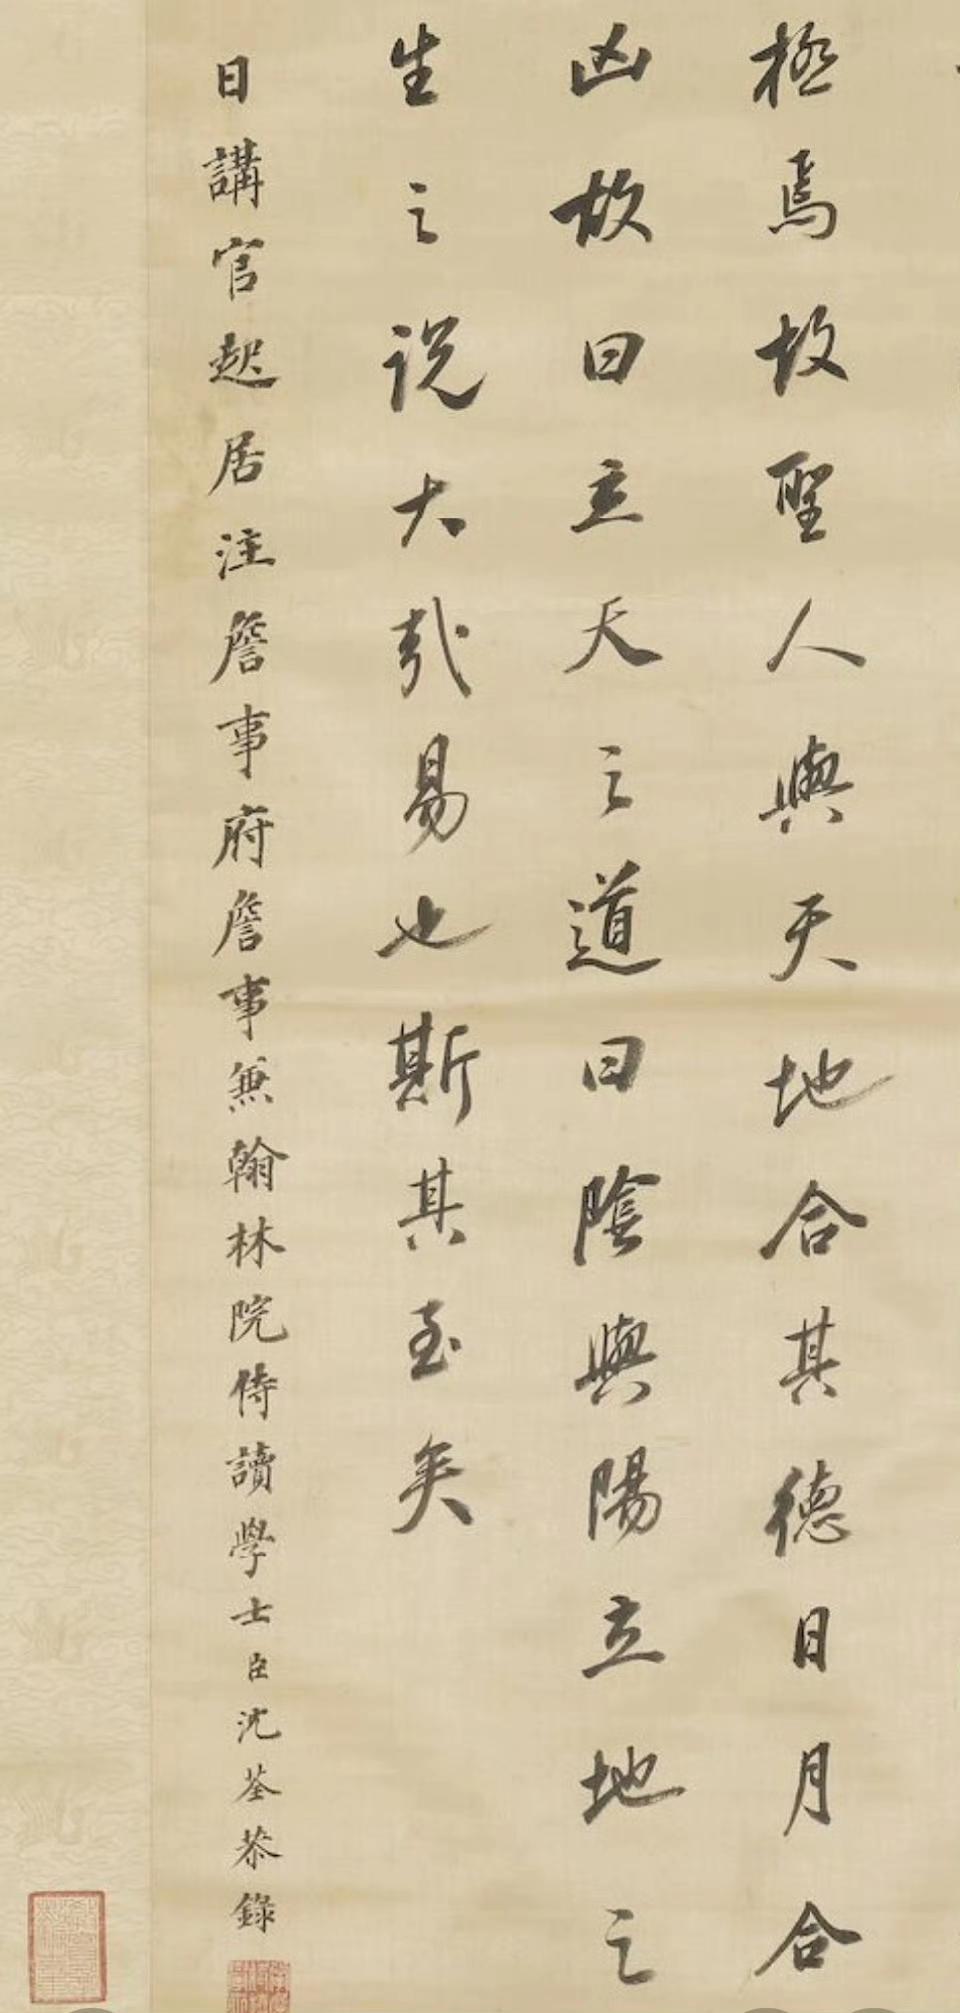 極焉故聖人與天地合其德日月合
凶故曰立天之道曰陰與陽立地之
生之説大哉易也斯其至矣
日講官起居注詹事府詹事兼翰林院侍讀學士臣沈荃恭錄